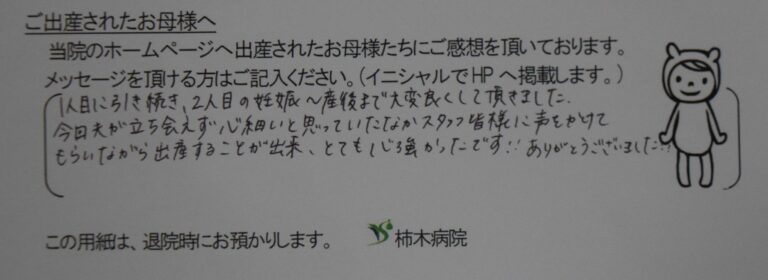 ご出産されたお母様へ
当院のホームページへ出産されたお母様たちにご感想を頂いております。
メッセージを頂ける方はご記入ください。(イニシャルでHPへ掲載します。)
1人目に引き続き、2人目の妊娠〜産後まで大変良くして頂きました。
今日夫が立ち会えず心細いと思っていたなかスタッフ皆様に声をかけて
もらいながら出産することが出来、とても心強かったです!!ありがとうございました!!
この用紙は、退院時にお預かりします。 柿木病院